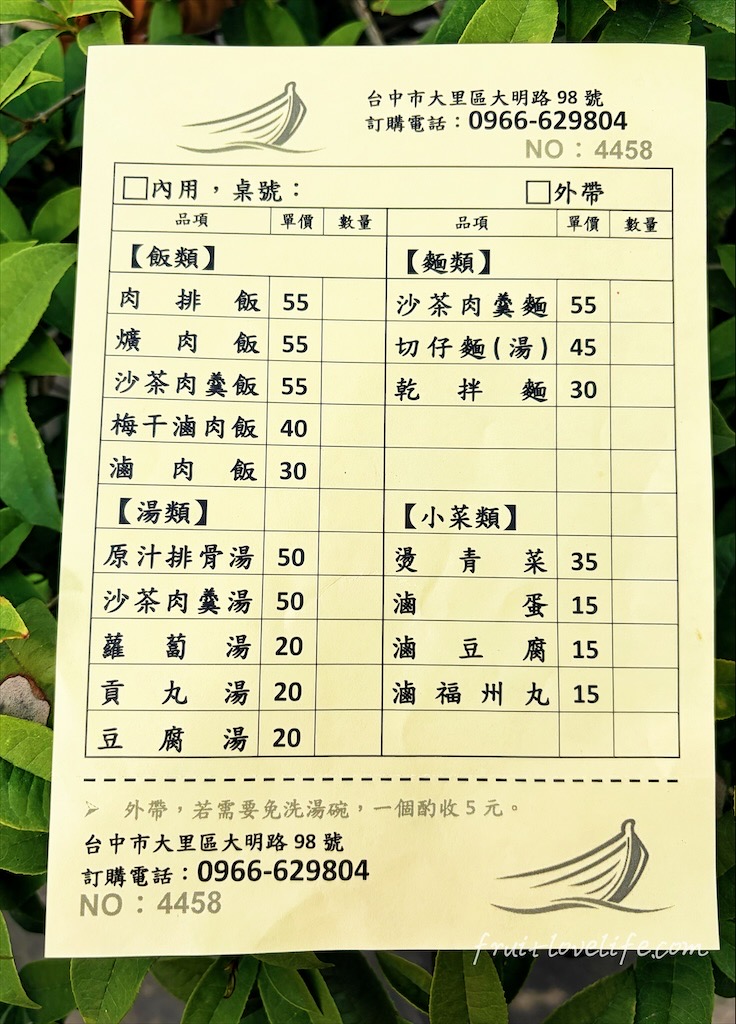 台中市大里區大明路 98 號
訂購電話：0966-629804
NO：4458
□內用，桌號： □外帶
品項 單價 數量 品項 單價 數量
【飯類】 【麵類】
肉排飯 55 沙茶肉羹麵 55
爌肉飯 55 切仔麵(湯) 45
沙茶肉羹飯 55 乾拌麵 30
梅干滷肉飯 40
滷肉飯 30
【湯類】 【小菜類】
原汁排骨湯 50 燙青菜 35
沙茶肉羹湯 50 滷蛋 15
蘿蔔湯 20 滷豆腐 15
貢丸湯 20 滷福州丸 15
豆腐湯 20
➢ 外帶，若需要免洗湯碗，一個酌收 5 元。
台中市大里區大明路 98 號
訂購電話：0966-629804
NO：4458
fruitlovelife.com